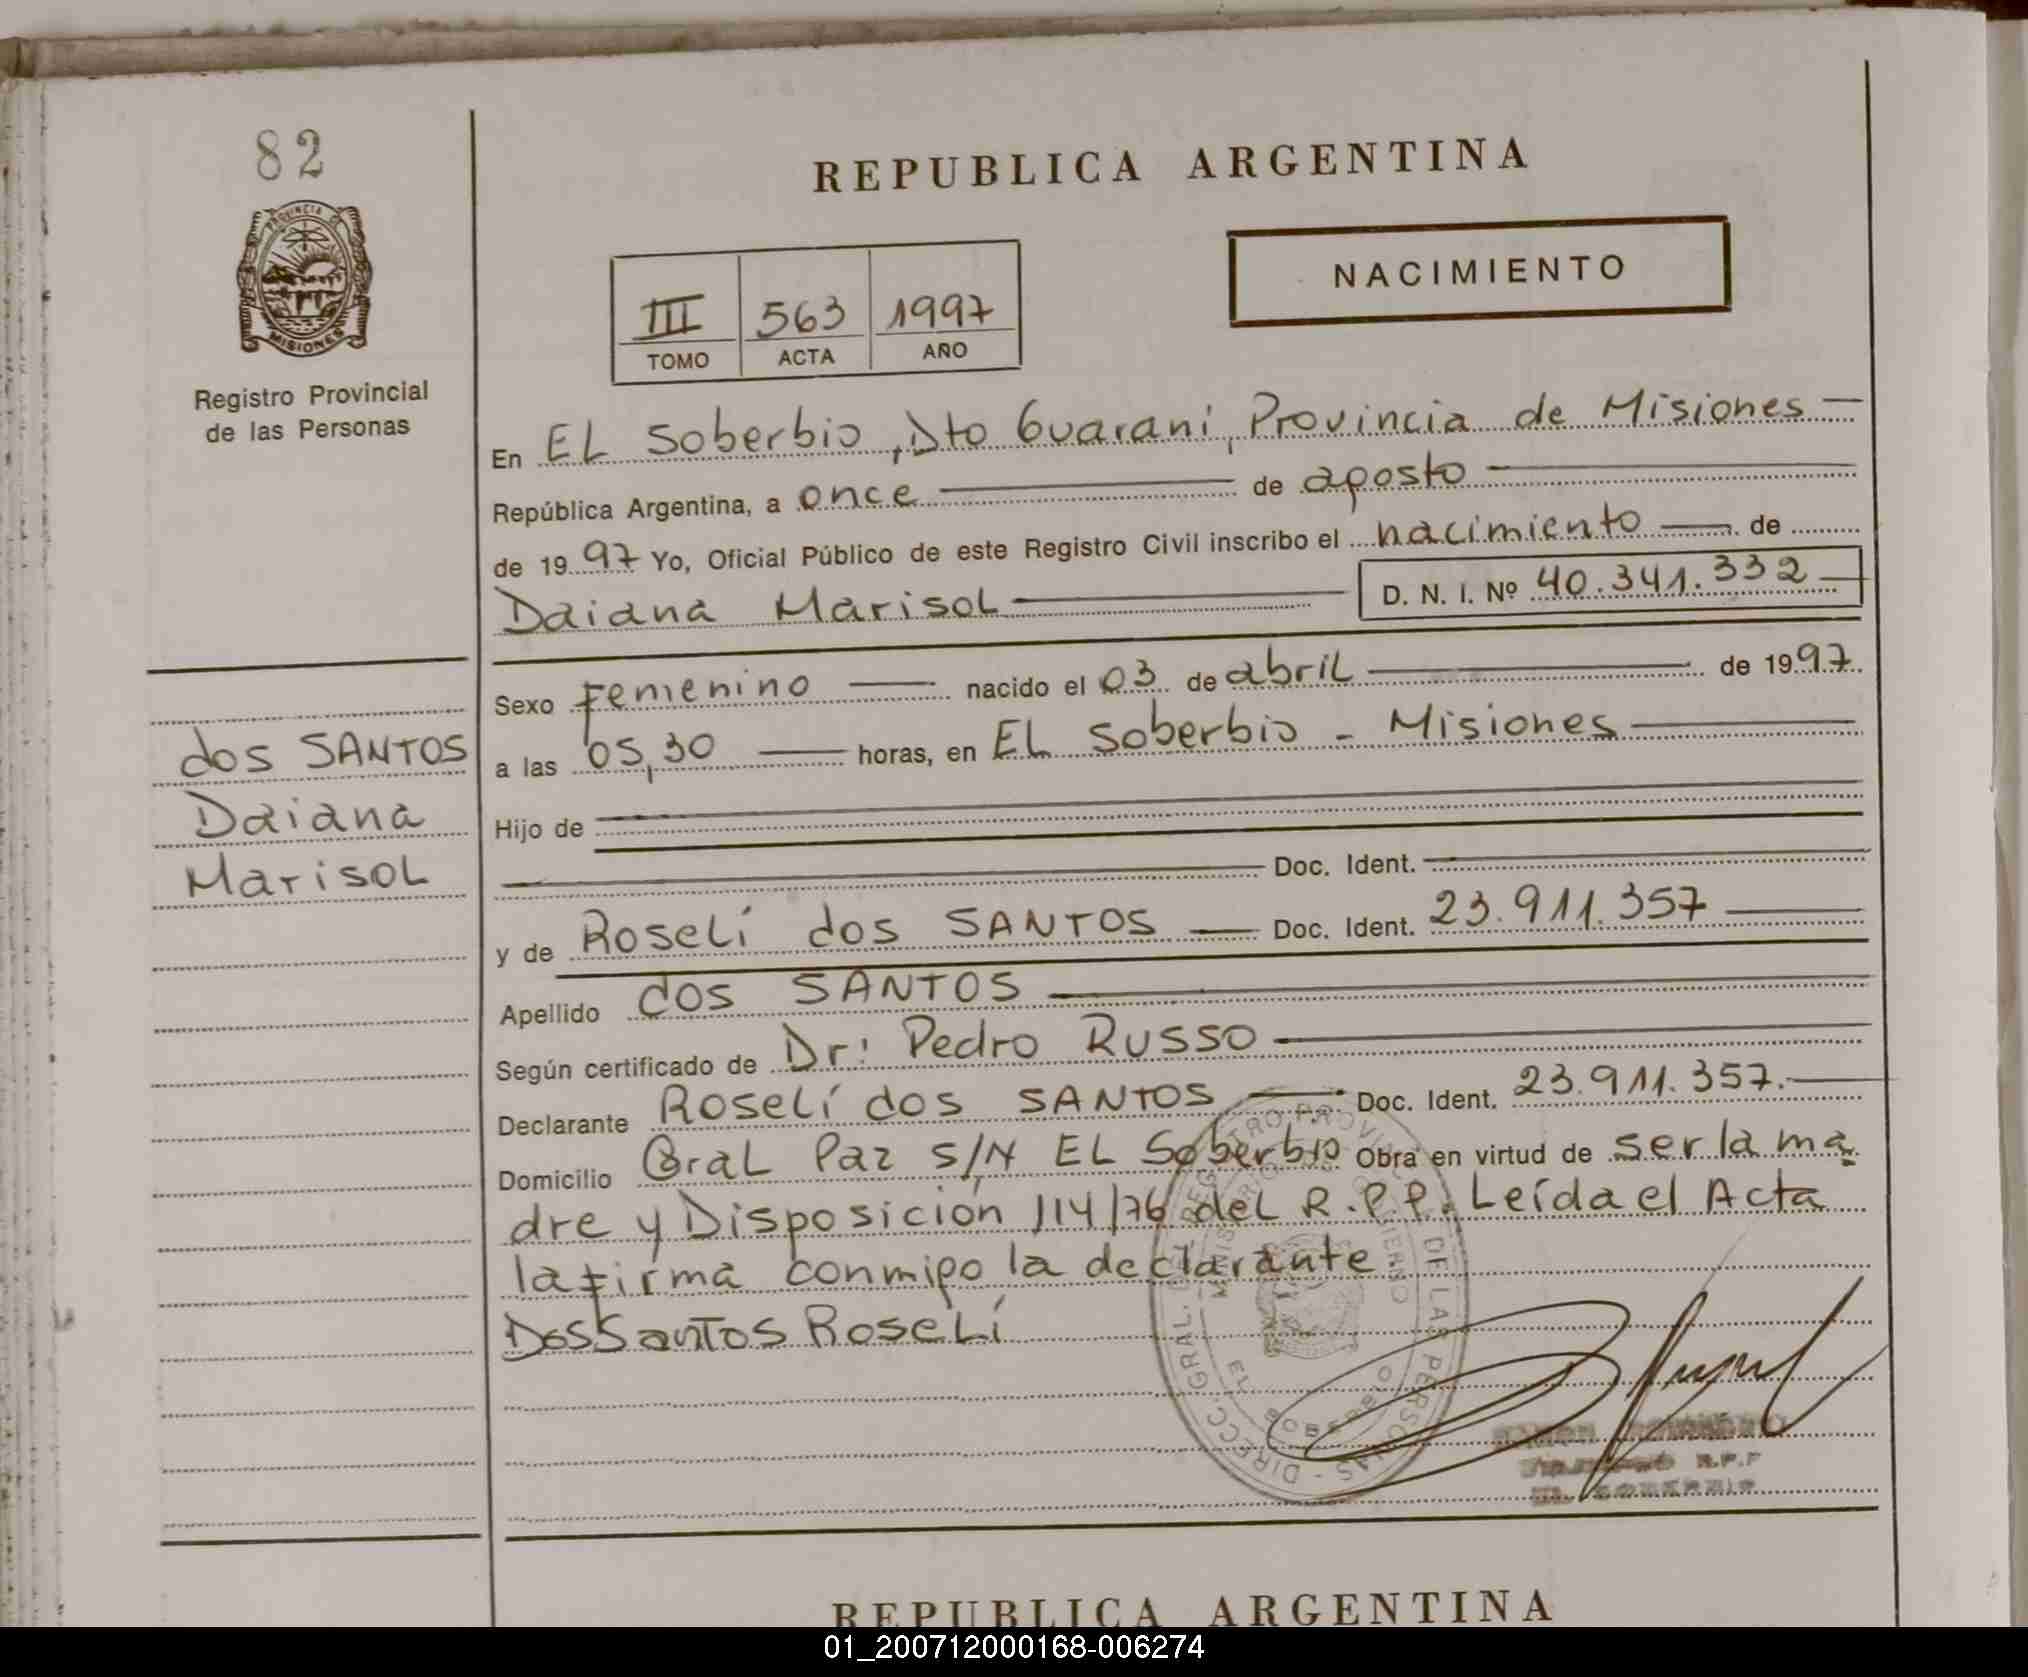 82
PROVINCIA DE
MISIONES
Registro Provincial
de las Personas
REPUBLICA ARGENTINA
NACIMIENTO
III 563 1997
TOMO ACTA AÑO
En EL Soberbio, Dto Guaraní, Provincia de Misiones
República Argentina, a once de agosto
de 1997 Yo, Oficial Público de este Registro Civil inscribo el nacimiento de
Daiana Marisol D. N. I. Nº 40.341.332
Sexo Femenino nacido el 03 de abril de 1997
a las 05,30 horas, en EL Soberbio - Misiones
dos SANTOS
Daiana
Marisol
Hijo de
Doc. Ident.
y de Roselí dos SANTOS Doc. Ident. 23.911.357
Apellido dos SANTOS
Según certificado de Dr: Pedro RUSSO
Declarante Roselí dos SANTOS Doc. Ident. 23.911.357.
Domicilio Gral Paz S/N EL Soberbio Obra en virtud de ser la ma
dre y Disposición 114/76 del R.P.P. Leída el Acta
la firma conmigo la declarante
Dos Santos Roselí
DIRECC. GRAL. DEL REGISTRO PROVINCIAL DE LAS PERSONAS
EL SOBERBIO
R.P.P
EL SOBERBIO
REPUBLICA ARGENTINA
01_200712000168-006274